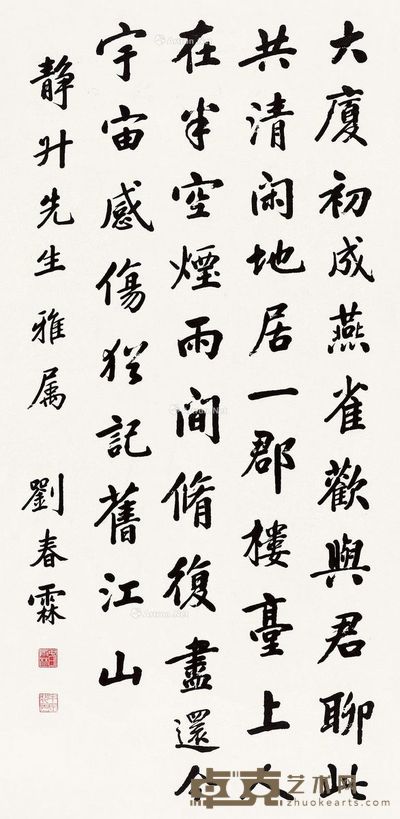 大廈初成燕雀歡與君聊此
共清閑地居一郡樓臺上人
在半空煙雨間脩復盡還今
宇宙感傷猶記舊江山
靜升先生雅属 劉春霖
卓克艺术网
zhuokearts.com